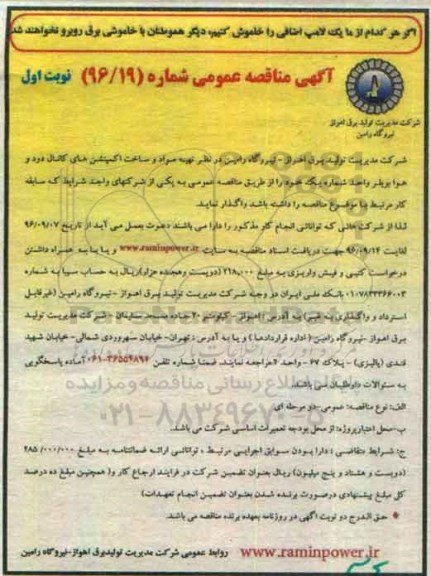 اگر هر کدام از ما یک لامپ اضافی را خاموش کنیم، دیگر هموطنان با خاموشی برق روبرو نخواهند شد
آگهی مناقصه عمومی شماره (۹۶/۱۹) نوبت اول
شرکت مدیریت تولید برق اهواز
نیروگاه رامین
شرکت مدیریت تولید برق اهواز - نیروگاه رامین در نظر تهیه مواد و ساخت اکسپنشن های کانال دود و
هوا بویلر واحد شماره یک خود را از طریق مناقصه عمومی به یکی از شرکتهای واجد شرایط که سابقه
کار مرتبط با موضوع مناقصه را داشته باشد واگذار نماید.
لذا از شرکت هائی که توانائی انجام کار مذکور را دارا می باشند دعوت بعمل می آید از تاریخ ۹۶/۰۹/۰۷
لغایت ۹۶/۰۹/۱۴ جهت دریافت اسناد مناقصه به سایت www.raminpower.ir و یا با به همراه داشتن
درخواست کتبی و فیش واریزی به مبلغ ۲۱۸،۰۰۰ (دویست وهجده هزار)ریال به حساب سیبا به شماره
۰۱۰۷۸۳۳۳۶۶۰۰۳ بانک ملی ایران در وجه شرکت مدیریت تولید برق اهواز - نیروگاه رامین (غیرقابل
استرداد و واگذاری به غیر) به آدرس : اهواز - کیلومتر ۲۰ جاده مسجد سلیمان - شرکت مدیریت تولید
برق اهواز - نیروگاه رامین ( اداره قراردادها ) و یا به آدرس : تهران - خیابان سهروردی شمالی - خیابان شهید
قندی (پالیزی) - پلاک ۶۷ - واحد ۱ مراجعه نمایند. ضمنا شماره تلفن ۳۶۵۵۴۸۹۴-۰۶۱ آماده پاسخگویی
به سئوالات داوطلبان می باشد.
الف: نوع مناقصه: عمومی - دو مرحله ای
ب - محل اعتبار پروژه: از محل بودجه تعمیرات اساسی شرکت می باشد.
ج: شرایط متقاضی : دارا بودن سوابق اجرایی مرتبط ، توانائی ارائه ضمانتنامه به مبلغ ۲۸۵/۰۰۰/۰۰۰
(دویست و هشتاد و پنج میلیون) ریال بعنوان تضمین شرکت در فرایند ارجاع کار و( همچنین مبلغ ده درصد
کل مبلغ پیشنهادی درصورت برنده شدن بعنوان تضمین انجام تعهدات)
* حق الدرج دو نوبت آگهی در روزنامه بعهده برنده مناقصه می باشد.
www.raminpower.ir روابط عمومی شرکت مدیریت تولیدبرق اهواز-نیروگاه رامین
پایگاه اطلاع رسانی مناقصه ومزایده
۰۲۱-۸۸۳۴۹۶۷۰-۵